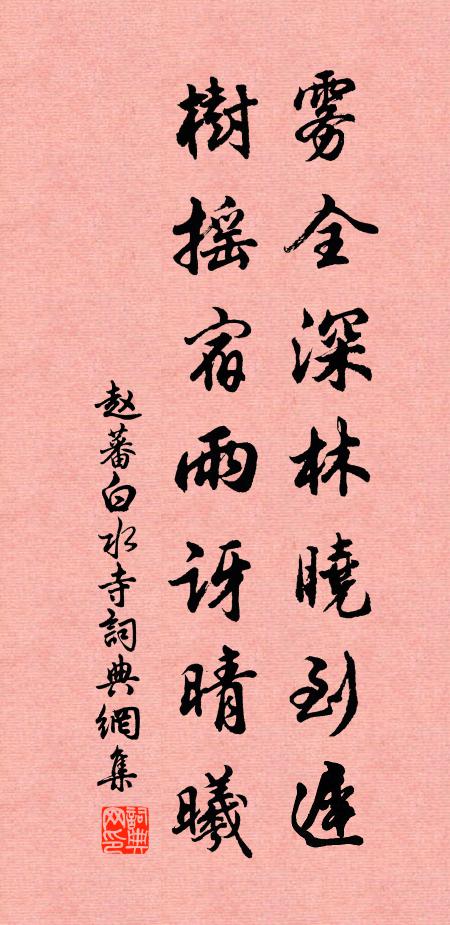 雾全深林曉到遲
樹摇宿雨訝晴曦
赵蕃白水寺詞典網集
詞典网印